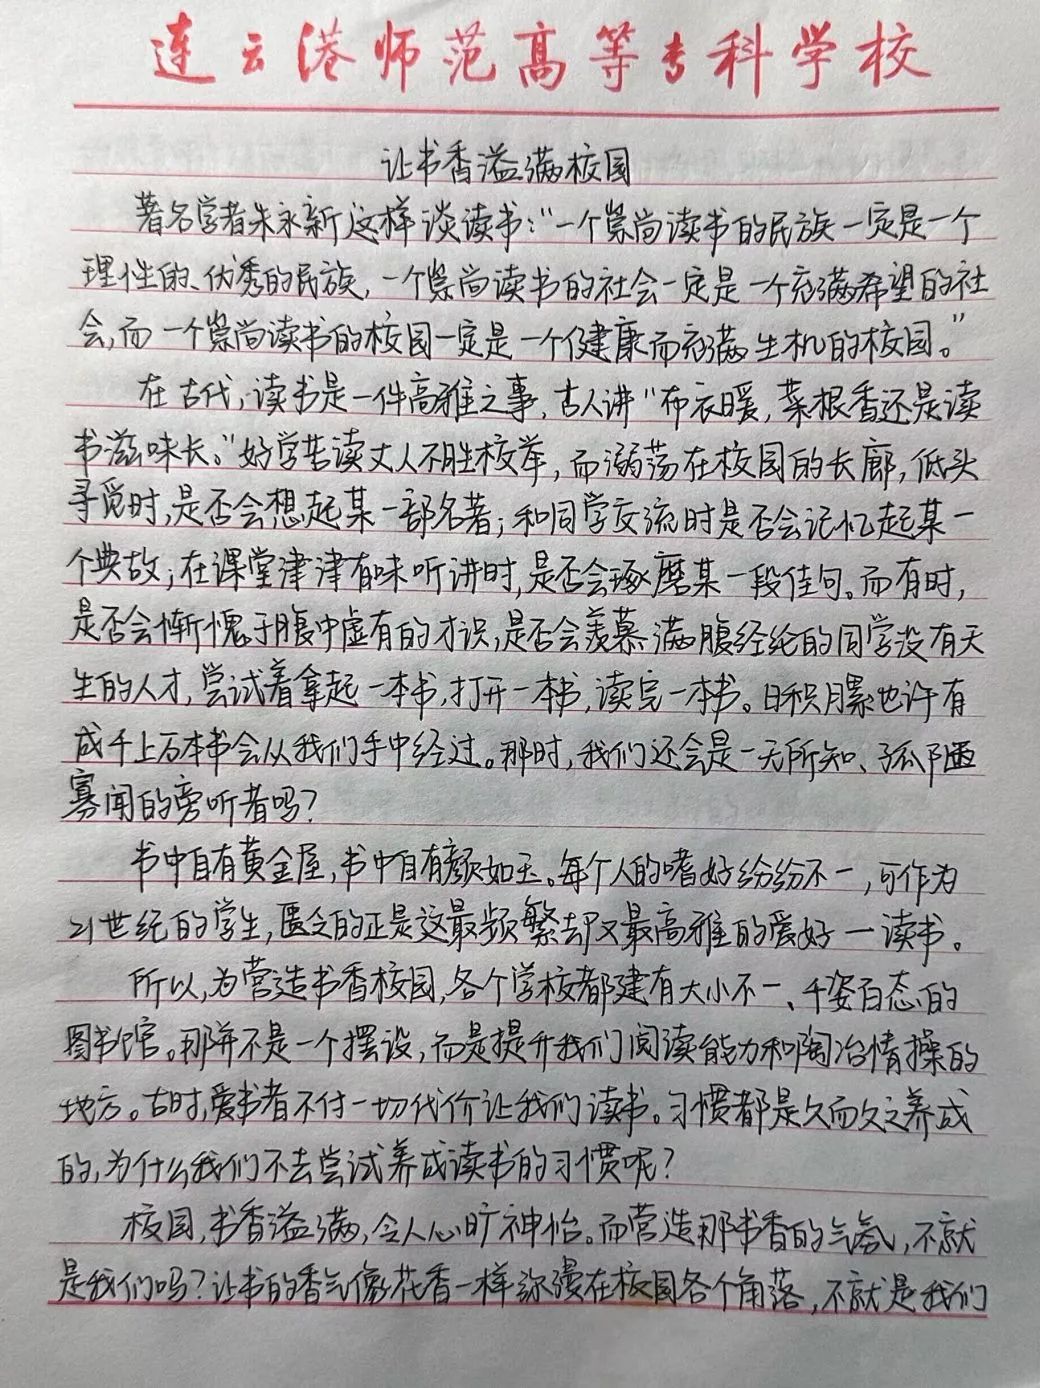 连云港师范高等专科学校
让书香溢满校园
著名学者朱永新这样谈读书:“一个崇尚读书的民族一定是一个
理性的、优秀的民族,一个崇尚读书的社会一定是一个充满希望的社
会,而一个崇尚读书的校园一定是一个健康而充满生机的校园。”
在古代,读书是一件高雅之事,古人讲“布衣暖,菜根香还是读
书滋味长。”好学苦读丈人不胜校举,而溺荡在校园的长廊,低头
寻觅时,是否会想起某一部名著;和同学交流时是否会记忆起某一
个典故;在课堂津津有味听讲时,是否会琢磨某一段佳句。而有时,
是否会惭愧于腹中虚有的才识,是否会羡慕满腹经纶的同学没有天
生的人才,尝试着拿起一本书,打开一本书,读完一本书。日积月累也许有
成千上万本书会从我们手中经过。那时,我们还会是一无所知、孤陋
寡闻的旁听者吗?
书中自有黄金屋,书中自有颜如玉。每个人的嗜好纷纷不一,可作为
21世纪的学生,匮乏的正是这最频繁却又最高雅的爱好一读书。
所以,为营造书香校园,各个学校都建有大小不一、千姿百态的
图书馆。那并不是一个摆设,而是提升我们阅读能力和陶冶情操的
地方。古时,爱书者不付一切代价让我们读书。习惯都是久而久之养成
的,为什么我们不去尝试养成读书的习惯呢?
校园,书香溢满,令人心旷神怡。而营造那书香的气氛,不就
是我们吗?让书的香气像花香一样弥漫在校园各个角落,不就是我们